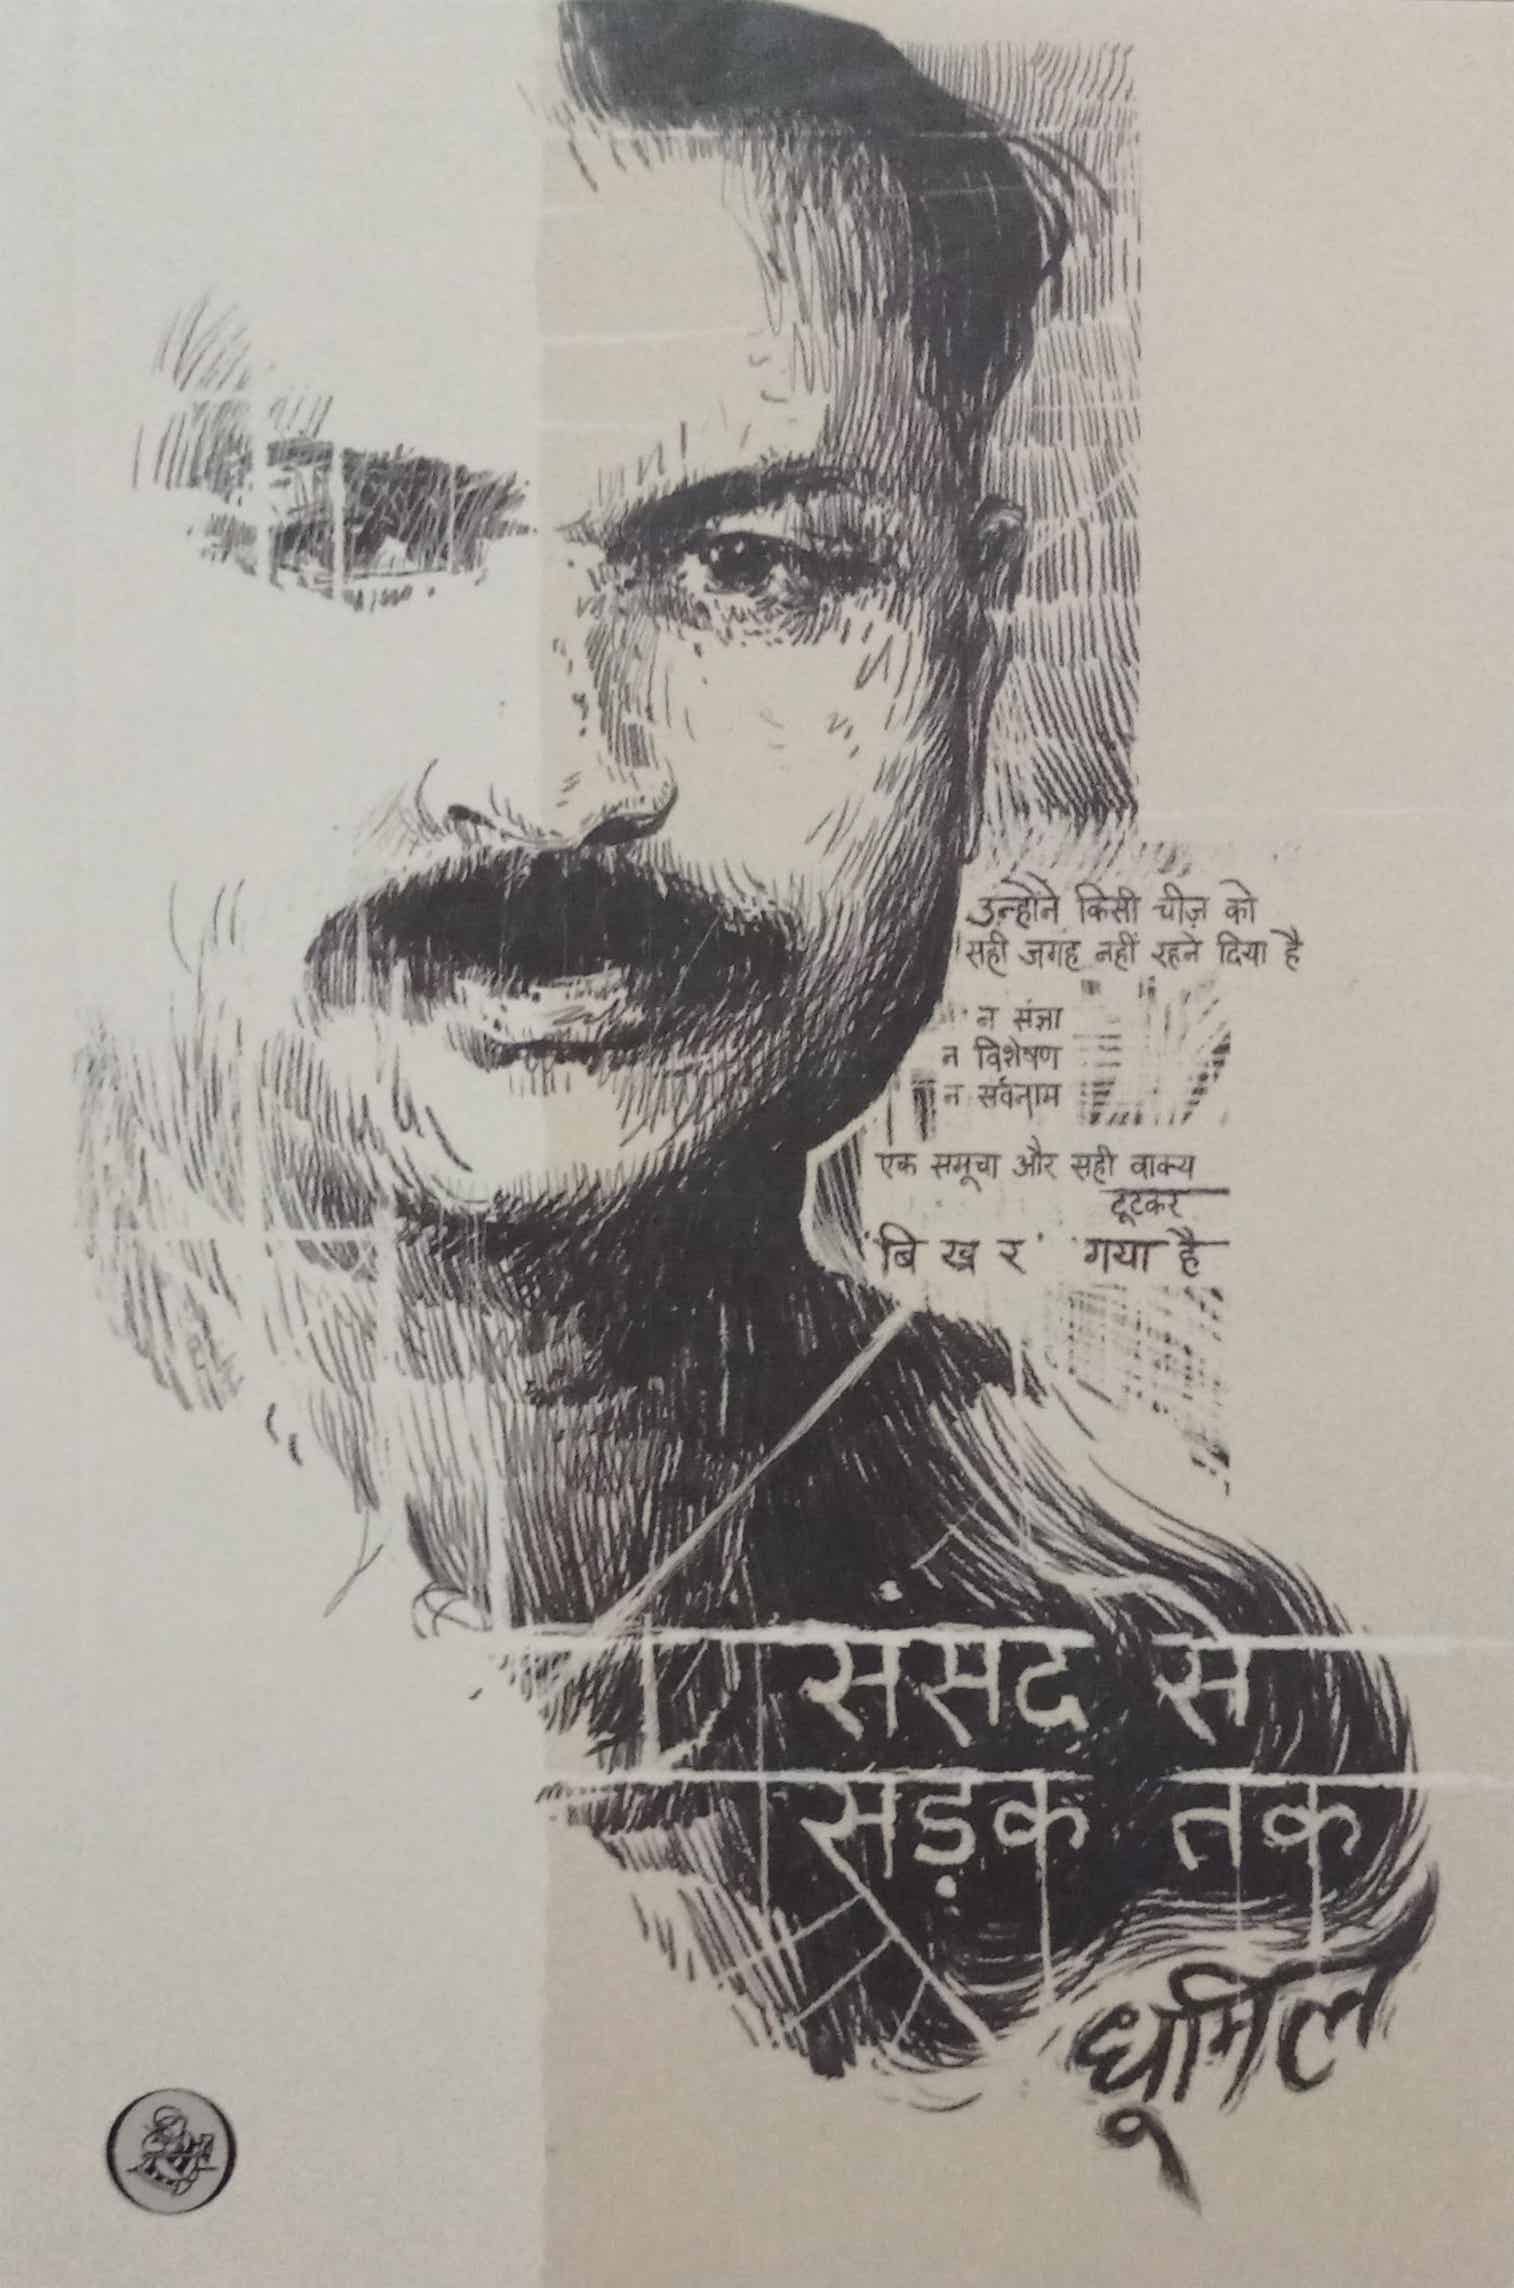 उन्होंने किसी चीज़ को
सही जगह नहीं रहने दिया है
न संज्ञा
न विशेषण
न सर्वनाम
एक समूचा और सही वाक्य
टूटकर
'बि ख र' गया है
संसद से
सड़क तक
धूमिल